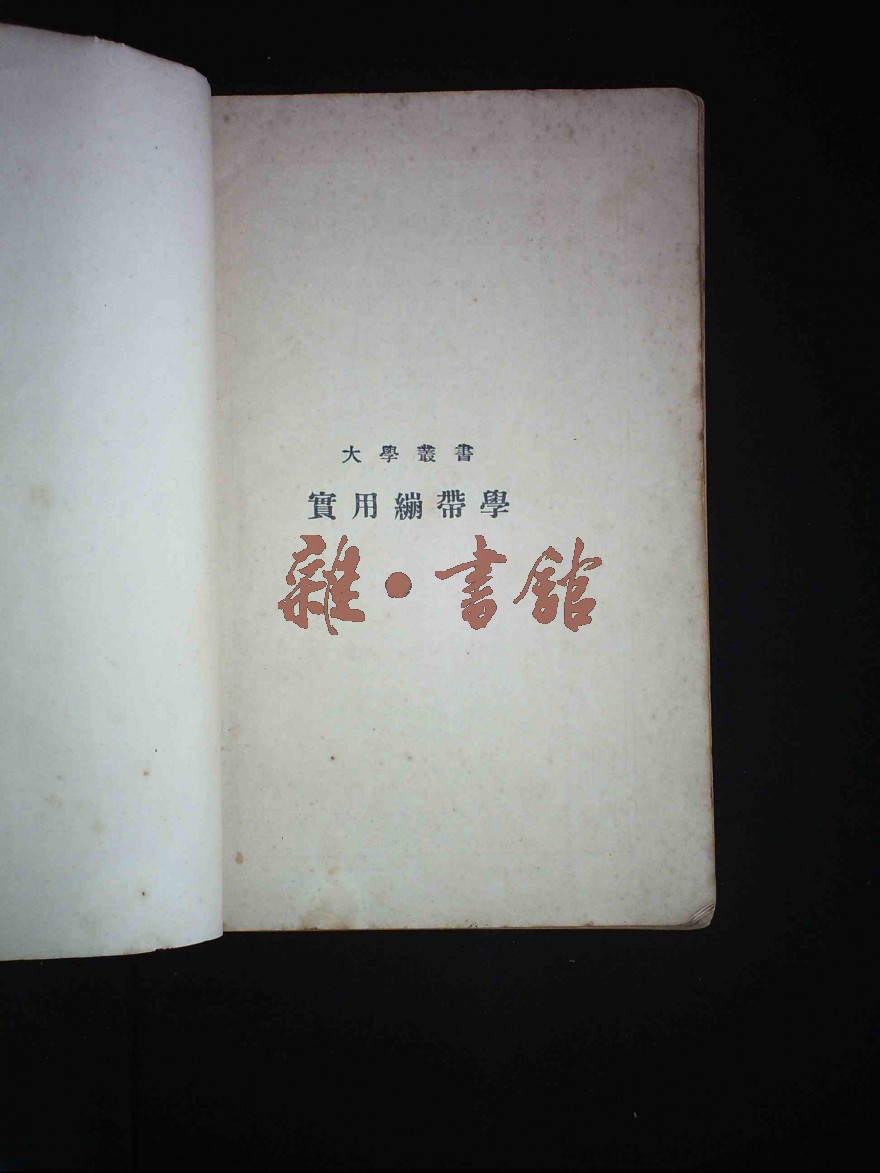 大學叢書
實用綳帶學
雜·書館